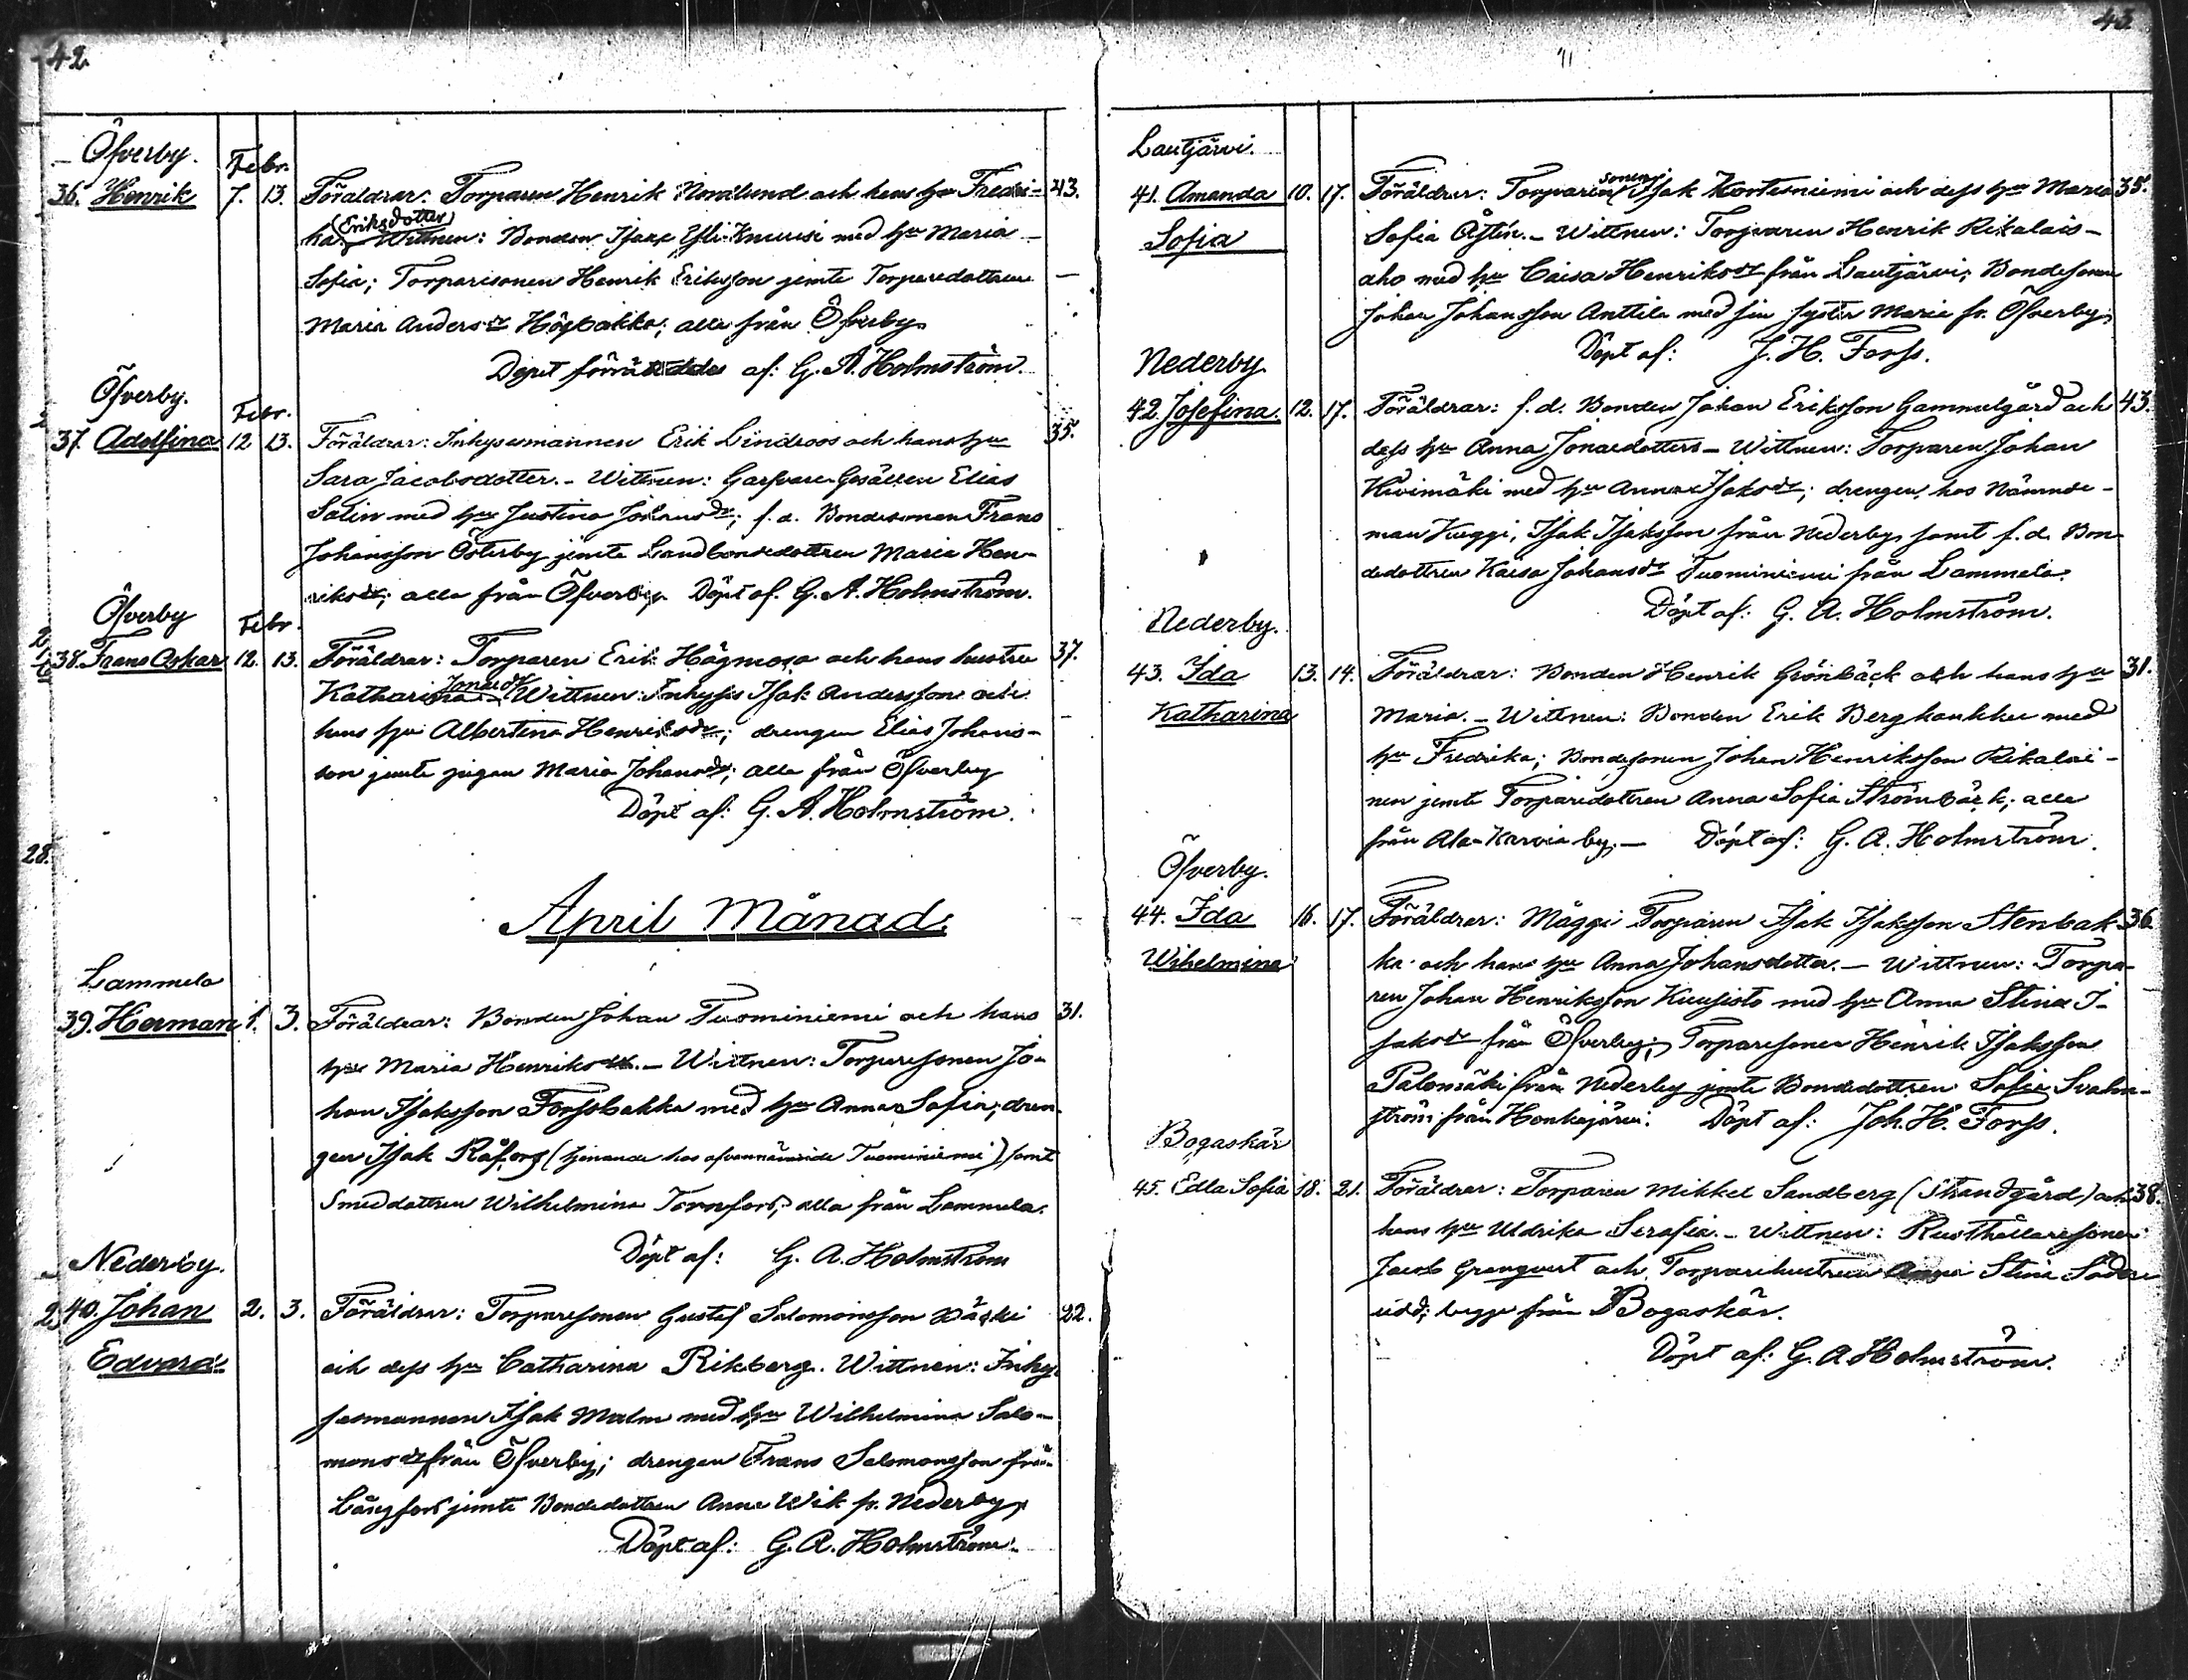 42.
Öfverby.
Febr.
36. Henrik 7. 13. Föräldrar: Torparen Henrik Nordlund och hans hu Fredri- 43.
(Eriksdotter)
ka. Wittnen: Bonden Isaac Yli-Knuusi med hu Maria
Sofia; Torparesonen Henrik Eriksson jemte Torparedottren
Maria Andersdr Högbakka; alla från Öfverby.
Döpt af: G. A. Holmström.
Öfverby.
Febr.
37. Adolfina 12 13. Föräldrar: Inhysesmannen Erik Lindroos och hans hu 35.
Sara Jacobsdotter. - Wittnen: Garfvare-Gesällen Elias
Salin med hu Justina Johansdr; f.d. Bondesonen Frans
Johansson Österby jemte Landbondedottren Maria Hen-
riksdr; alla från Öfverby. Döpt af. G. A. Holmström.
Öfverby
Febr.
38. Frans Oskar 12. 13. Föräldrar: Torparen Erik Högmosa och hans hustru 37.
Jonasdr
Katharina Wittnen: Inhyses Isak Andersson och
hans hu Albertina Henriksdr; drengen Elias Johans-
son jemte pigan Maria Johansdr; alla från Öfverby
Döpt af: G. A. Holmström.
28.
April Månad.
Lammela
39. Herman 1. 3. Föräldrar: Bonden Johan Tuominiemi och hans 31.
hu Maria Henriksdr. - Wittnen: Torparesonen Jo-
han Isaksson Forssbakka med hu Anna Sofia; dren-
gen Isak Råfors (tjenande hos ofvannämnde Tuominiemi) samt
Smeddottren Wilhelmina Tornfors; alla från Lammela.
Döpt af: G. A. Holmström
Nederby.
40. Johan 2. 3. Föräldrar: Torparesonen Gustaf Salomonsson 22.
Edvard
och dess hu Catharina Rikberg. Wittnen: Inhy-
sesmannen Isak Malm med hu Wilhelmina Salo-
monsdr från Öfverby; drengen Frans Salomonsson från
Långfors jemte Bondedottren Anna Wik fr. Nederby.
Döpt af: G. A. Holmström.
43.
Lautjärvi.
41. Amanda 10. 17. Föräldrar: Torparesonen Isak Kortesniemi och dess hu Maria 35.
Sofia
Sofia Åstin. - Wittnen: Torparen Henrik Rikalais-
aho med hu Caisa Henriksdr från Lautjärvi; Bondesonen
Johan Johansson Anttila med sin syster Maria fr. Öfverby.
Döpt af: J. H. Forss.
Nederby.
42. Josefina. 12. 17. Föräldrar: f.d. Bonden Johan Eriksson Gammelgård och 43.
dess hu Anna Jonasdotter. - Wittnen: Torparen Johan
Kivimäki med hu Anna Isaksdr; drengen hos Nämnde-
man Kuggi, Isak Isaksson från Nederby, samt f.d. Bon-
dedottren Kaisa Johansdr Tuominiemi från Lammela.
Döpt af: G. A. Holmström.
Nederby.
43. Ida 13. 14. Föräldrar: Bonden Henrik Grönbäck och hans hu 31.
Katharina
Maria. - Wittnen: Bonden Erik Berghaukka med
hu Fredrika; Bondesonen Johan Henriksson Rikalai-
nen jemte Torparedottren Anna Sofia Strömbäck; alla
från Ala-Karvia by. - Döpt af: G. A. Holmström.
Öfverby.
44. Ida 16. 17. Föräldrar: Måggi Torparen Isak Isaksson Stenbak- 36
Wilhelmina
ka och hans hu Anna Johansdotter. - Wittnen: Torpa-
ren Johan Henriksson Kuusisto med hu Anna Stina I-
saksdr från Öfverby; Torparesonen Henrik Isaksson
Palomäki från Nederby jemte Bondedottren Sofia Svalm-
ström från Honkajärvi. Döpt af: Joh. H. Forss.
Bogaskär
45. Edla Sofia 18. 21. Föräldrar: Torparen Mikkel Sandberg (Strandgård) och 38.
hans hu Uldrika Serafia. - Wittnen: Rusthållaresonen
Jacob Grenqvist och Torparehustrun Anna Stina
begge från Bogaskär.
Döpt af: G. A Holmström.